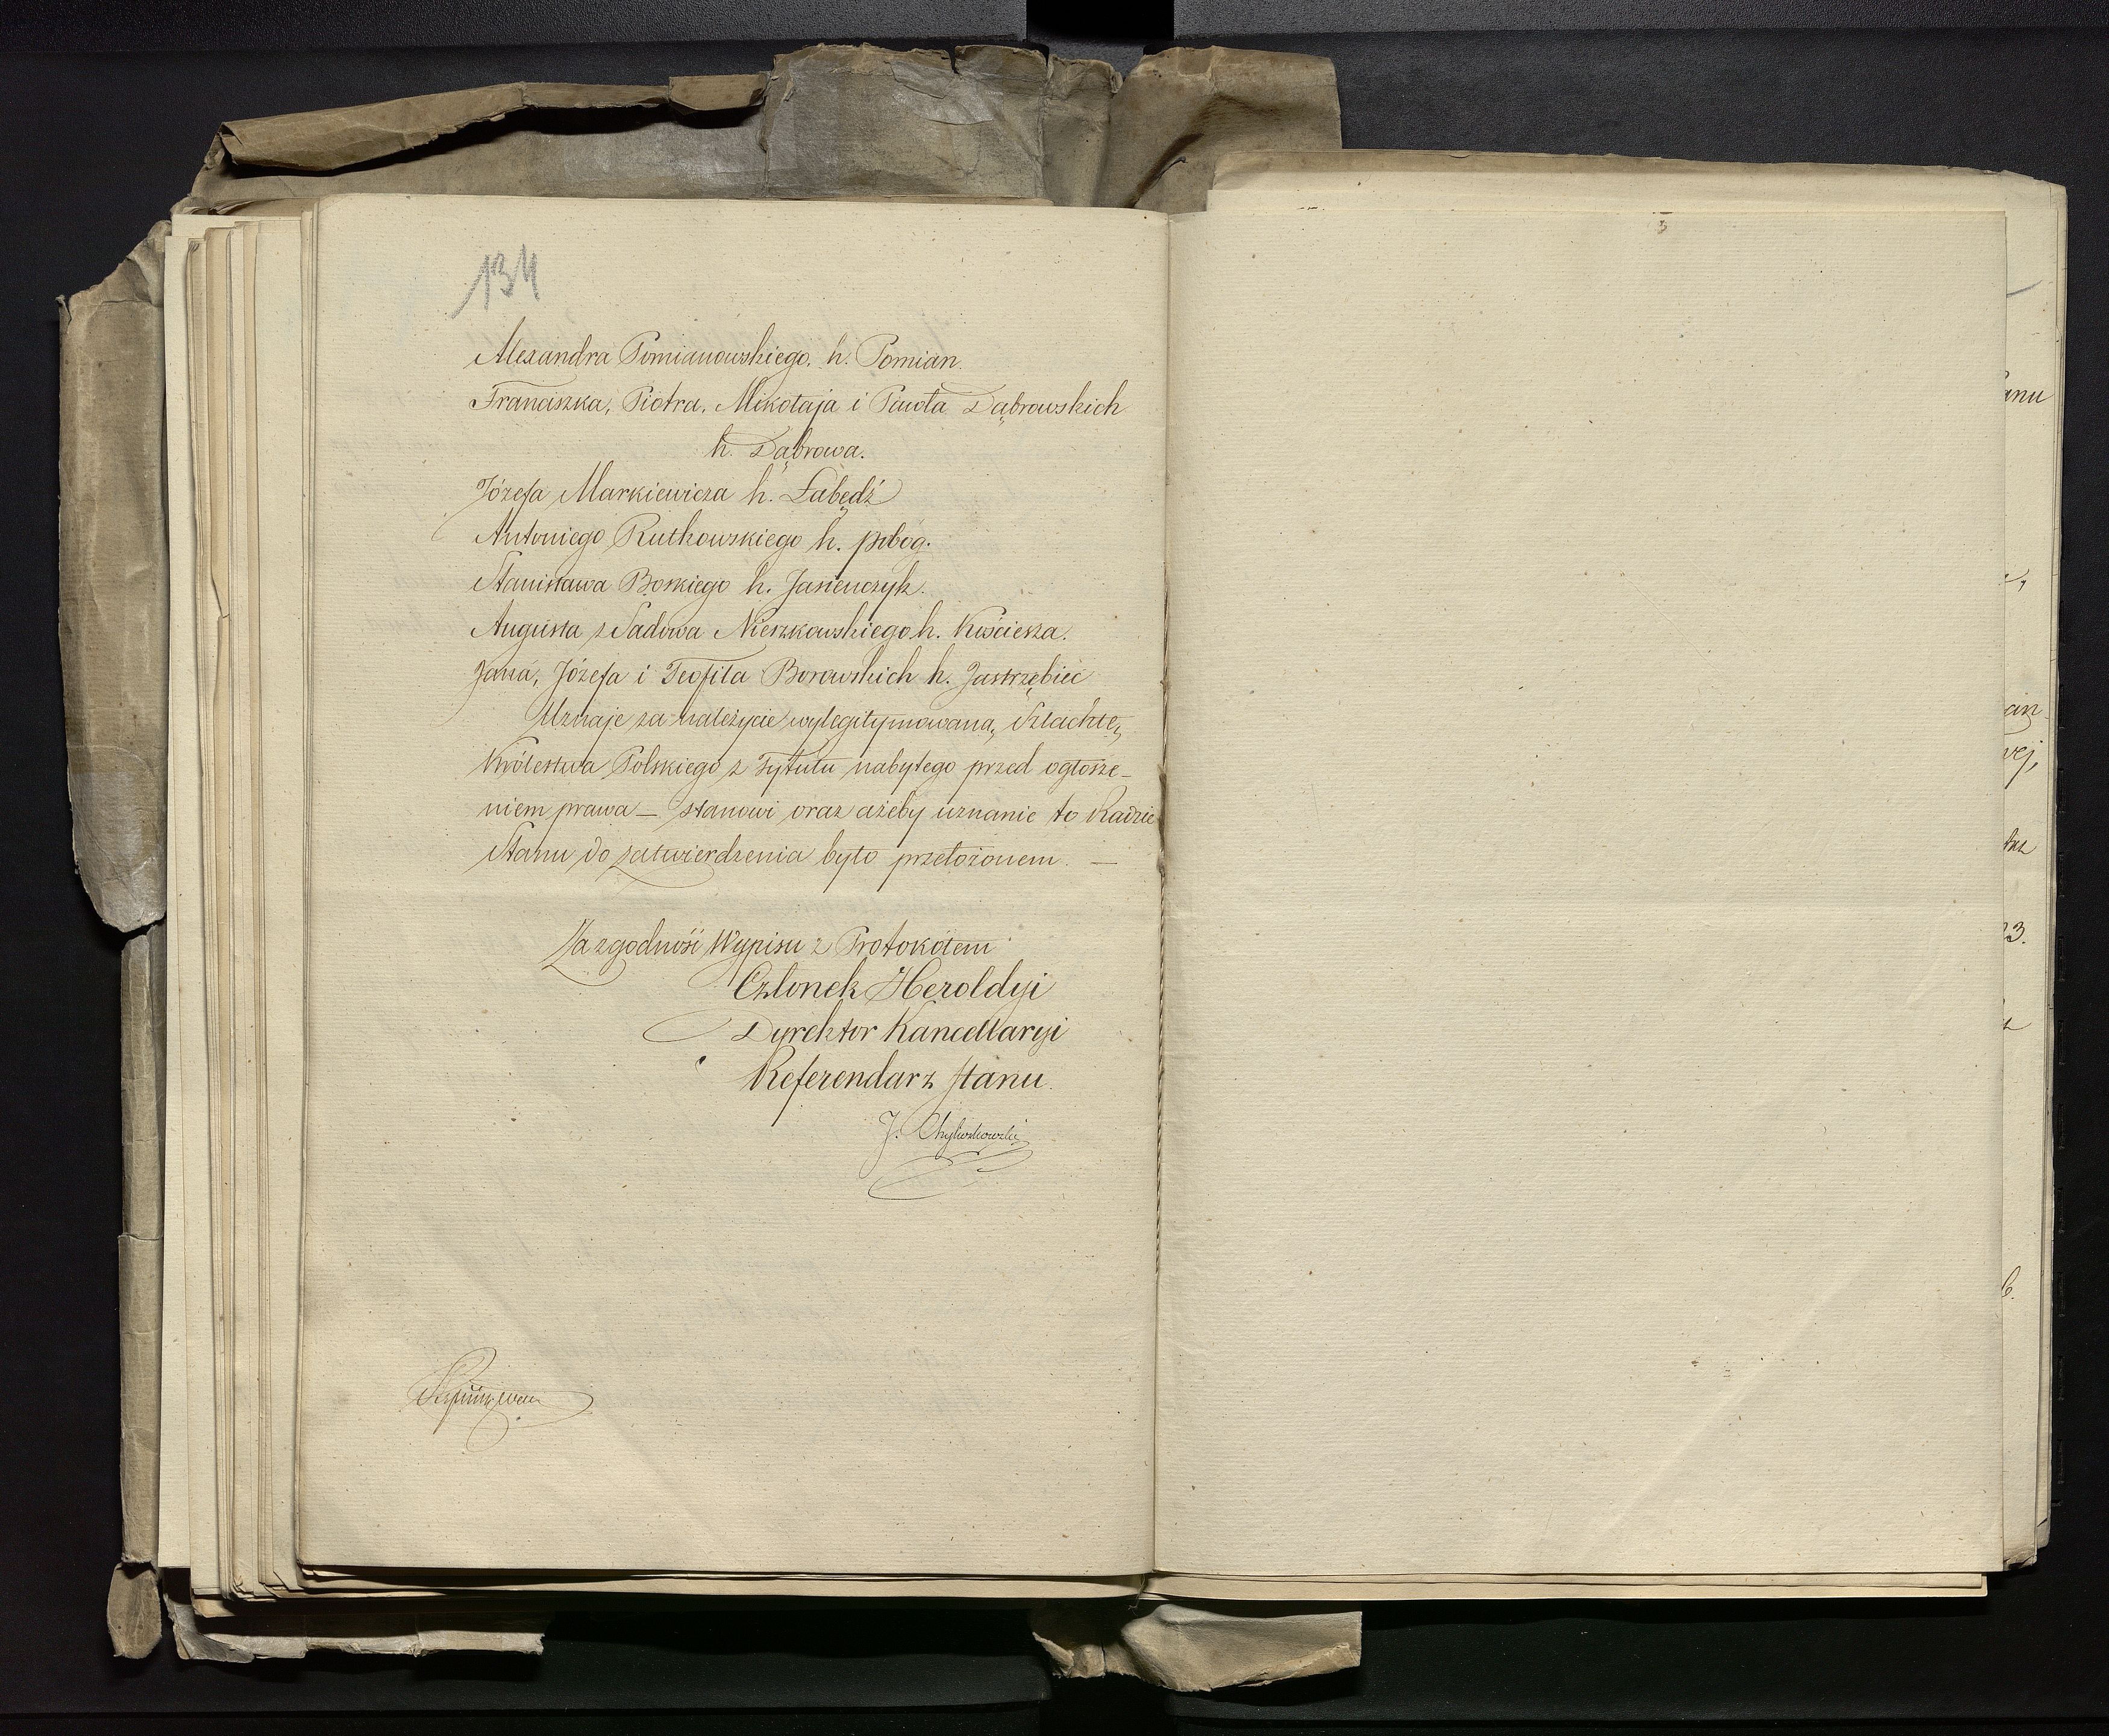 134
Alexandra Pomianowskiego. h. Pomian.
Franciszka, Piotra, Mikołaja i Pawła Dąbrowskich
h. Dąbrowa.
Józefa Markiewicza h. Łabędź
Antoniego Rutkowskiego h. pobóg.
Stanisława Borkiego h. Jasieńczyk.
Augusta z Sadowa Nierzkowskiego h. Kościesza.
Jana, Józefa i Teofila Borowskich h. Jastrzębiec
Uznaje za należycie wylegitymowaną Szlachtę
Królestwa Polskiego z Tytułu nabytego przed ogłosze-
niem prawa — stanowi oraz ażeby uznanie to Radzie
Stanu do zatwierdzenia było przełożonem. —
Za zgodność Wypisu z Protokółem
Członek Heroldyi
Dyrektor Kancellaryi
Referendarz Stanu.
J.
anu
an
wej,
23.
6.